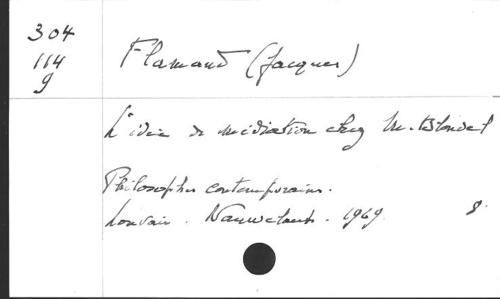 304
114
9
Flamand (Jacques)
L'idée de médiation chez M. Blondel
Philosophes contemporains.
Louvain. Nauwelaerts. 1969. 8.